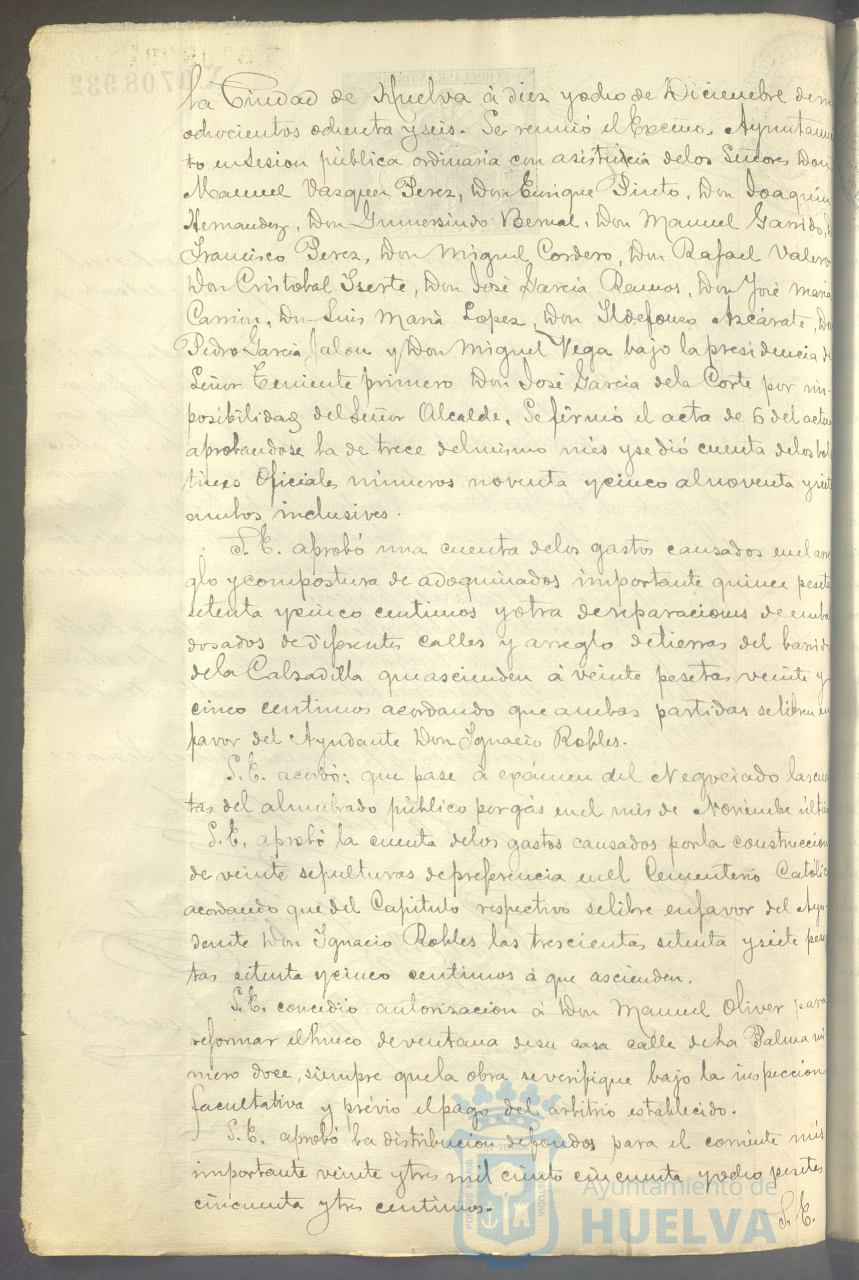 La Ciudad de Huelva á diez y ocho de Diciembre de m
ochocientos ochenta y seis. Se reunió el Excmo. Ayuntami
to en sesion pública ordinaria con asistencia de los Señores Don
Manuel Vazquez Perez, Don Enrique Pinto, Don Joaquín
Hernandez, Don Gumersindo Bernal, Don Manuel Garrido, D
Francisco Perez, Don Miguel Cordero, Don Rafael Valero
Don Cristobal Iserte, Don José Garcia Ramos, Don José Maria
Carrion, Dn Luis Maria Lopez, Don Ildefonso Azcárate, Don
Pedro Garcia Jalon y Don Miguel Vega bajo la presidencia de
Señor Teniente primero Don José Garcia de la Corte por im-
posibilidad del Señor Alcalde. Se firmó el acta de 6 del actu
aprobandose la de trece del mismo mes y se dió cuenta de los bol
tines Oficiales números noventa y cinco al noventa y siet
ambos inclusives.
S. E. aprobó una cuenta de los gastos causados en el arre
glo y compostura de adoquinados importante quince peseta
setenta y cinco centimos y otra de reparaciones de emba
dosados de diferentes calles y arreglo de tierras del barrio
de la Calzadilla que ascienden á veinte pesetas veinte y
cinco centimos acordando que ambas partidas se libren en
favor del Ayudante Don Ignacio Robles.
S. E. acordó: que pase á exámen del Negociado las cuen
tas del alumbrado público por gás en el mes de Noviembre últi
S. E. aprobó la cuenta de los gastos causados por la construccion
de veinte sepulturas de preferencia en el Cementerio Católic
acordando que del Capitulo respectivo se libre en favor del Ayu-
dante Don Ignacio Robles las trescientas setenta y siete pese
tas setenta y cinco centimos á que ascienden.
S. E. concedio autorizacion á Don Manuel Oliver para
reformar el hueco de ventana de su casa calle de La Palma nú
mero doce, siempre que la obra se verifique bajo la inspeccion
facultativa y prévio el pago del arbitrio establecido.
S. E. aprobó la distribucion de fondos para el corriente mes
importante veinte y tres mil ciento cincuenta y ocho pesetas
cincuenta y tres centimos.
S. E.
Ayuntamiento de
HUELVA